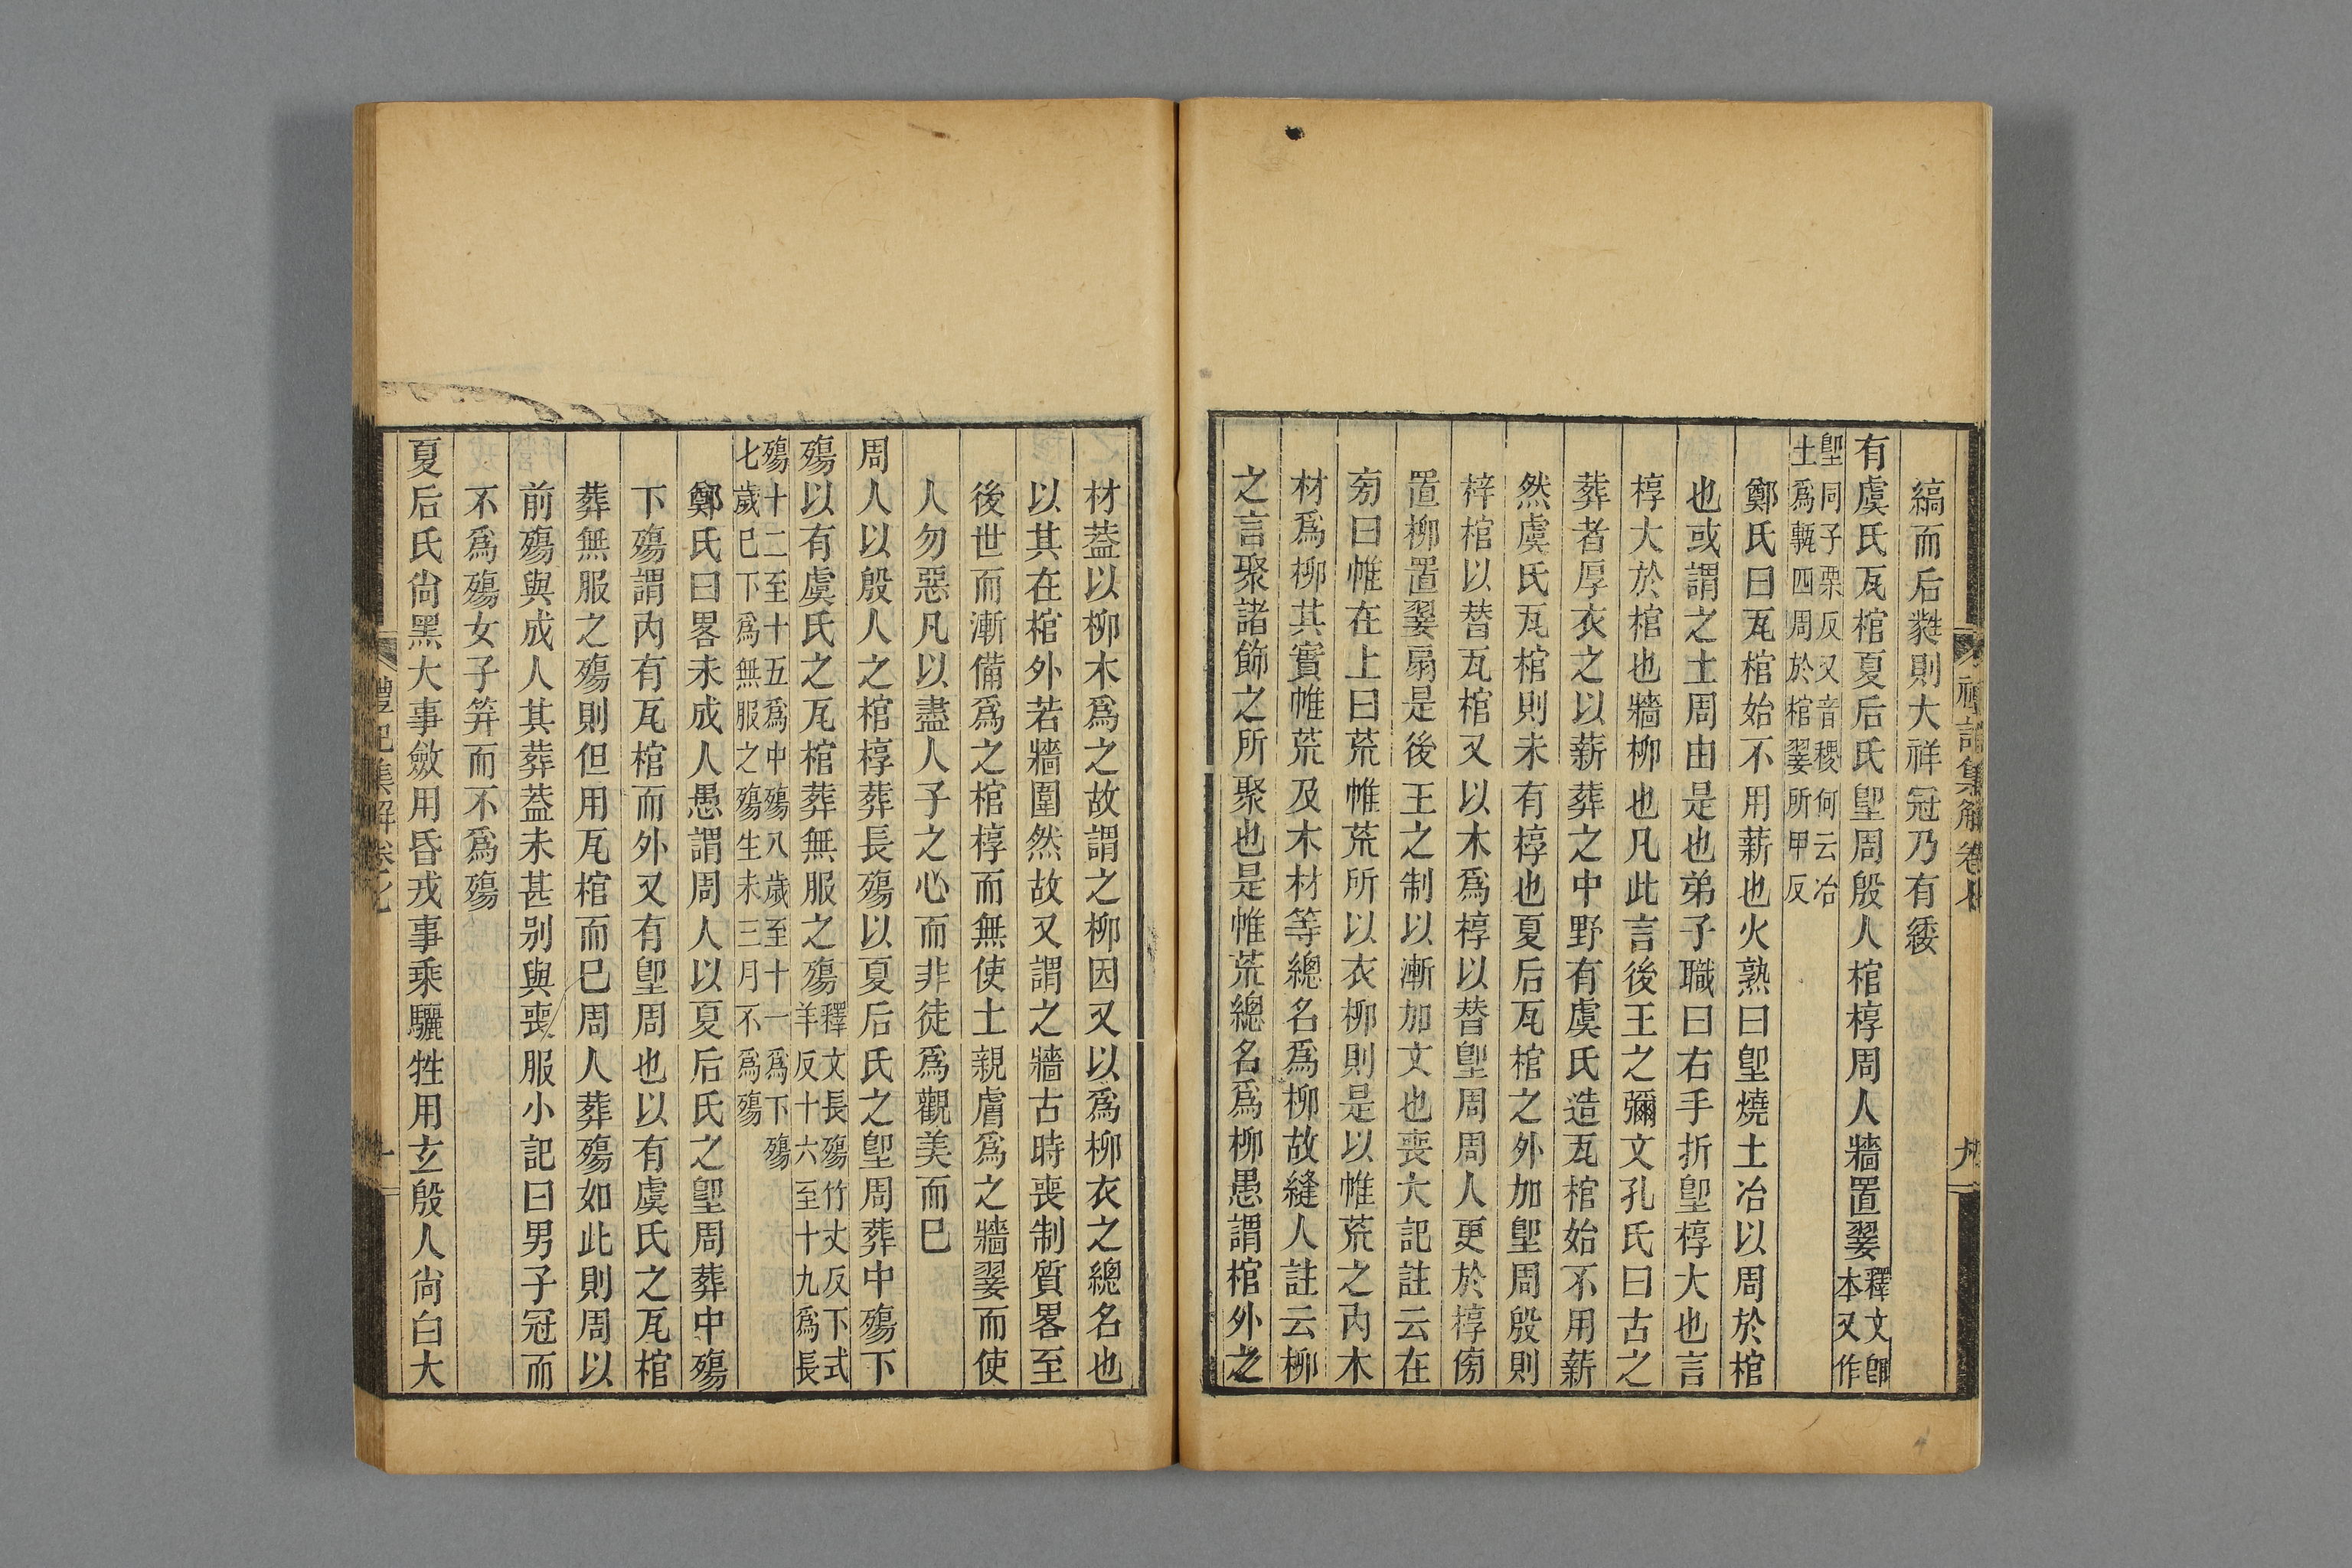 縞而后䙝則大祥冠乃有緌
有虞氏瓦棺夏后氏堲周殷人棺椁周人牆置翣釋文堲本又作
堲同子栗反又音稷何云冶土爲甎四周於棺翣所甲反
鄭氏曰瓦棺始不用薪也火熟曰堲燒土冶以周於棺
也或謂之土周由是也弟子職曰右手折堲椁大也言
椁大於棺也牆柳也凡此言後王之彌文孔氏曰古之
葬者厚衣之以薪葬之中野有虞氏造瓦棺始不用薪
然虞氏瓦棺則未有椁也夏后瓦棺之外加堲周殷則
梓棺以替瓦棺又以木爲椁以替堲周周人更於椁傍
置柳置翣扇是後王之制以漸加文也喪大記註云在
旁曰帷在上曰荒帷荒所以衣柳則是以帷荒之內木
材爲柳其實帷荒及木材等總名爲柳故縫人註云柳
之言聚諸飾之所聚也是帷荒總名爲柳愚謂棺外之
禮記集解卷七
九
材葢以柳木爲之故謂之柳因又以爲柳衣之總名也
以其在棺外若牆圍然故又謂之牆古時喪制質畧至
後世而漸備爲之棺椁而無使土親膚爲之牆翣而使
人勿惡凡以盡人子之心而非徒爲觀美而已
周人以殷人之棺椁葬長殤以夏后氏之堲周葬中殤下
殤以有虞氏之瓦棺葬無服之殤釋文長殤竹丈反下式羊反十六至十九爲長
殤十二至十五爲中殤八歲至十一爲下殤七歲已下爲無服之殤生未三月不爲殤
鄭氏曰畧未成人愚謂周人以夏后氏之堲周葬中殤
下殤謂內有瓦棺而外又有堲周也以有虞氏之瓦棺
葬無服之殤則但用瓦棺而已周人葬殤如此則周以
前殤與成人其葬葢未甚别與喪服小記曰男子冠而
不爲殤女子筓而不爲殤
夏后氏尙黑大事斂用昏戎事乘驪牲用玄殷人尙白大
禮記集解卷七